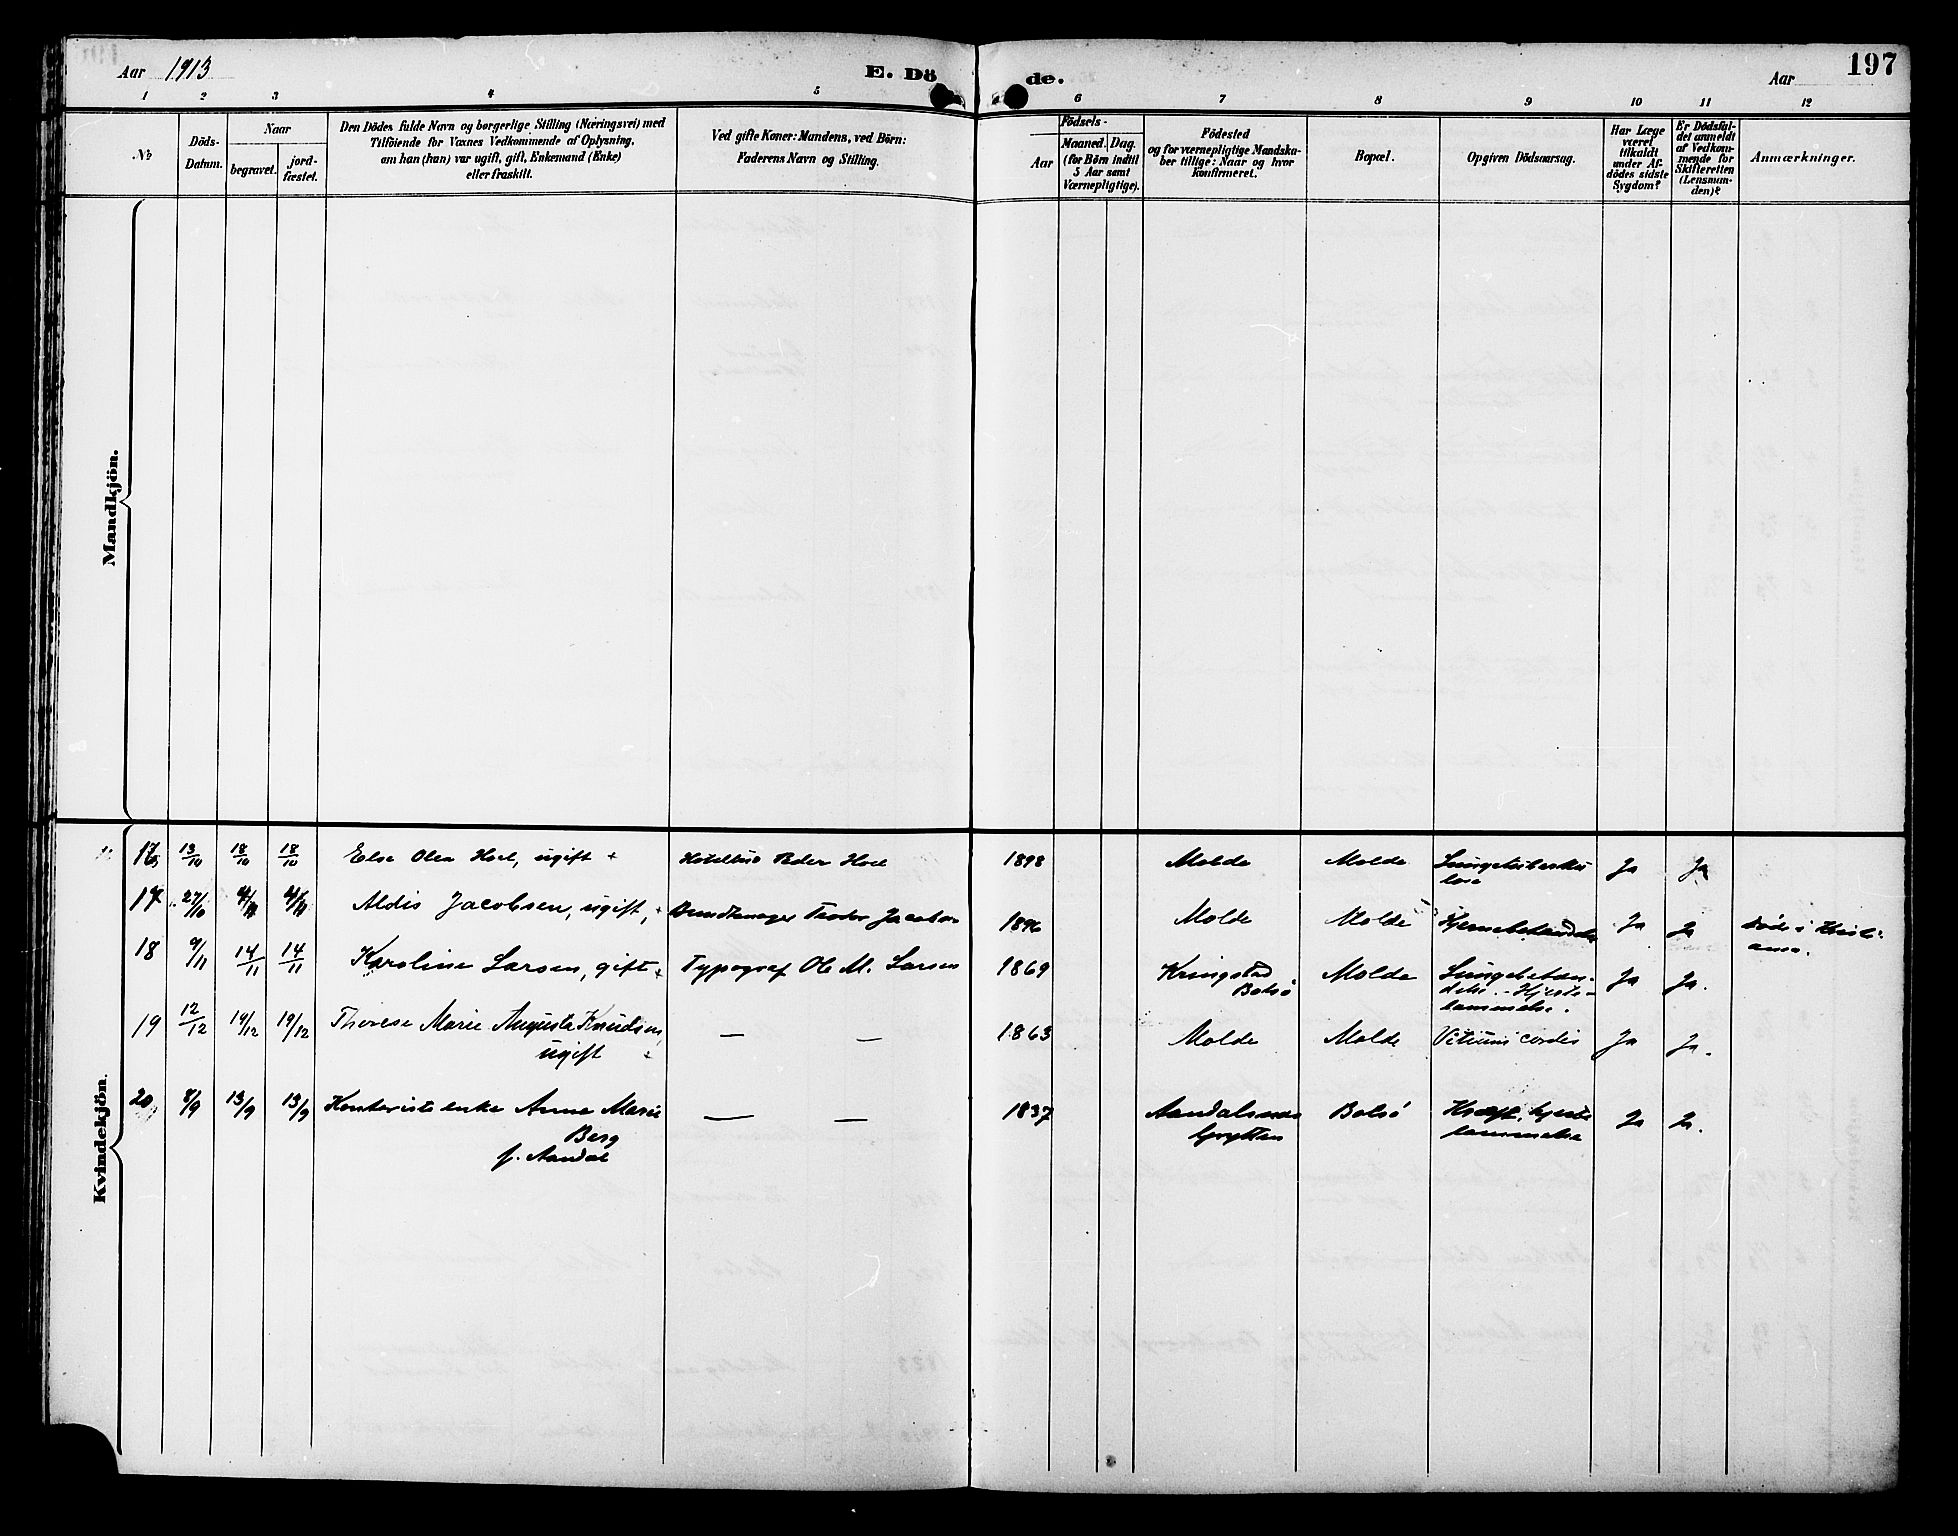 Aar 1913
E. Dö
de.
Aar
197
1 2 3 4 5 6 7 8 9 10 11 12
№
Döds-
Datum.
Naar
begravet.
jord-
fæstet.
Den Dödes fulde Navn og borgerlige Stilling (Næringsvei) med
Tilföiende for Voxnes Vedkommende af Oplysning,
om han (hun) var ugift, gift, Enkemand (Enke)
eller fraskilt.
Ved gifte Koner: Mandens, ved Börn:
Faderens Navn og Stilling.
Födsels-
Aar
Maaned.
Dag.
(for Börn indtil
5 Aar samt
Værnepligtige).
Födested
og for værnepligtige Mandska-
ber tillige: Naar og hvor
konfirmeret.
Bopæl.
Opgiven Dödsaarsag.
Har Læge
været
tilkaldt
under Af-
dödes sidste
Sygdom?
Er Dödsfal-
det anmeldt
af Vedkom-
mende for
Skifteretten
(Lensman-
den)?
Anmærkninger.
Mandkjön.
Kvindekjön.
13/10 18/10 18/10 Else Olea Hoel, ugift + Peder Hoel 1898 Molde Molde Ja Ja
17 27/10 Aldis Jacobsen, ugift, + 1896 Molde Molde Ja Ja Död i Kristi-
ania.
18 9/11 14/11 14/11 Karoline Larsen, gift + Typograf Ole M. Larsen 1869 Kringstad
Bolsö Molde Lungebetæn-
delse. - Hjerte-
lammelse. Ja Ja.
19 12/12 19/12 19/12 Therese Marie Augusta Knudsen,
ugift + — — 1863 Molde Molde Vitium cordis Ja Ja.
20 8/9 13/9 13/9 Kontorists enke Anne Marie
Berg
f. Aandal — — 1837 Aandalsnes
Grytten Bolsö Kræft, hjerte
lammelse Ja Ja.